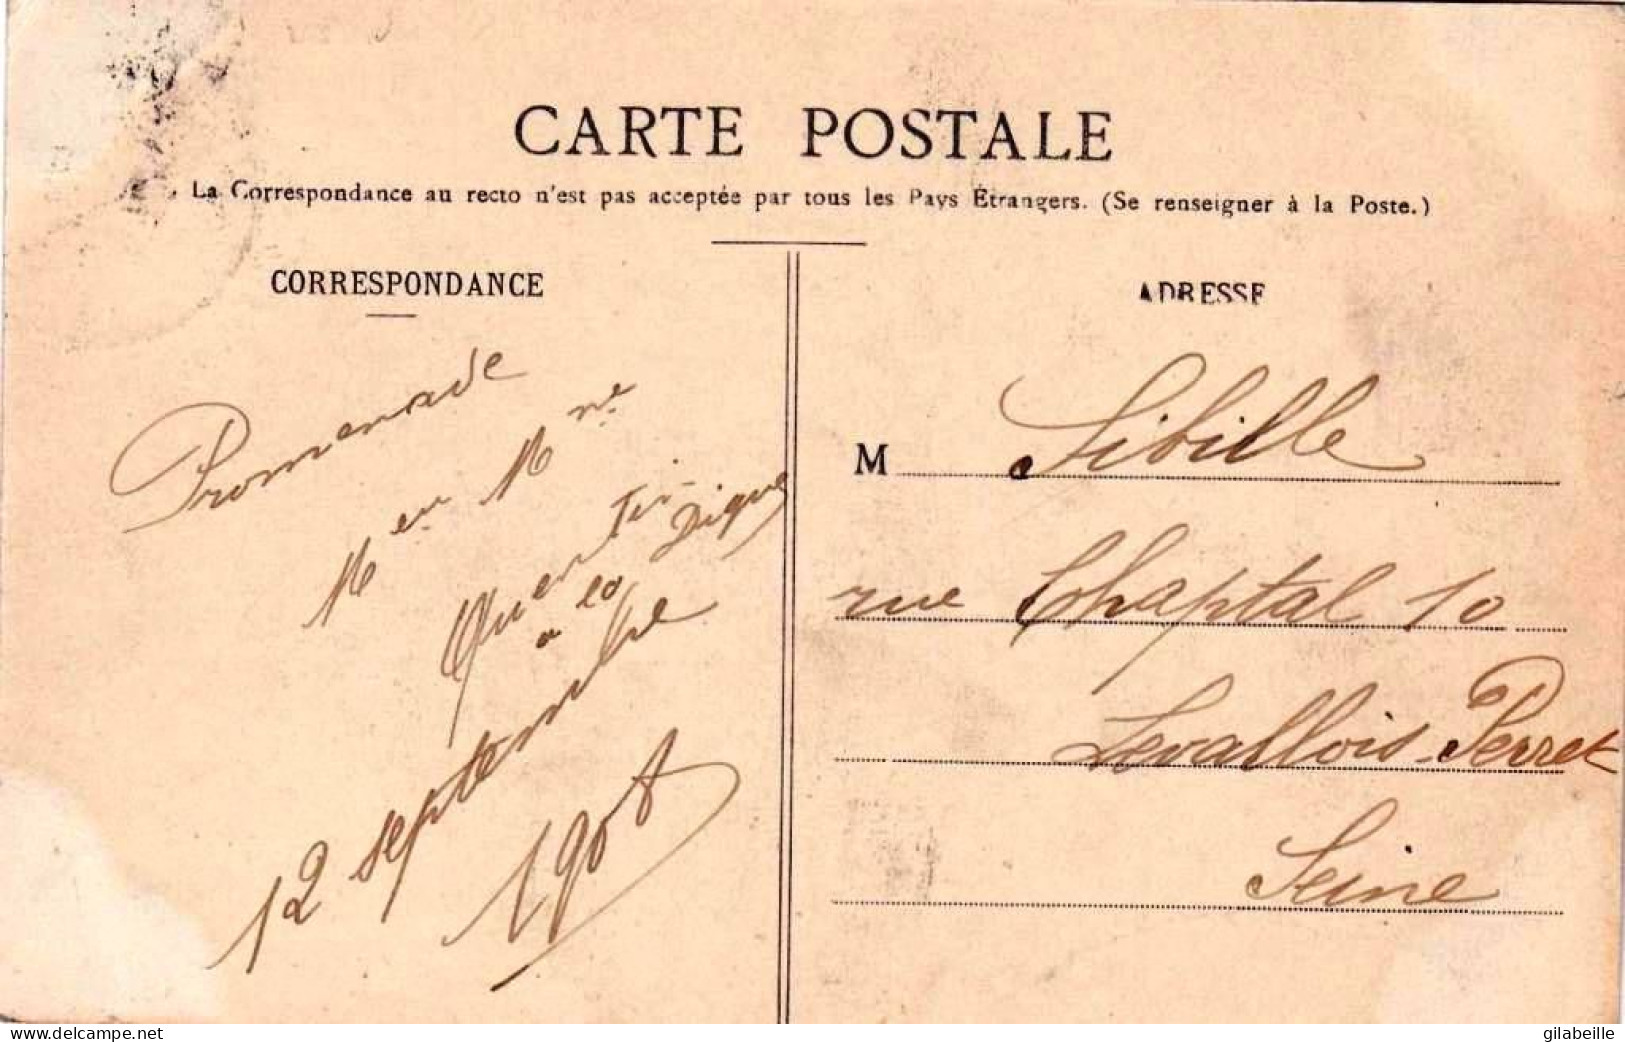 CARTE POSTALE
La Correspondance au recto n'est pas acceptée par tous les Pays Étrangers. (Se renseigner à la Poste.)
CORRESPONDANCE
Promenade
M et M me
Quentin
a la Digue
12 septembre
190
ADRESSE
M Sibille
rue Chaptal 10
Levallois-Perret
Seine
www.delcampe.net
gilabeille